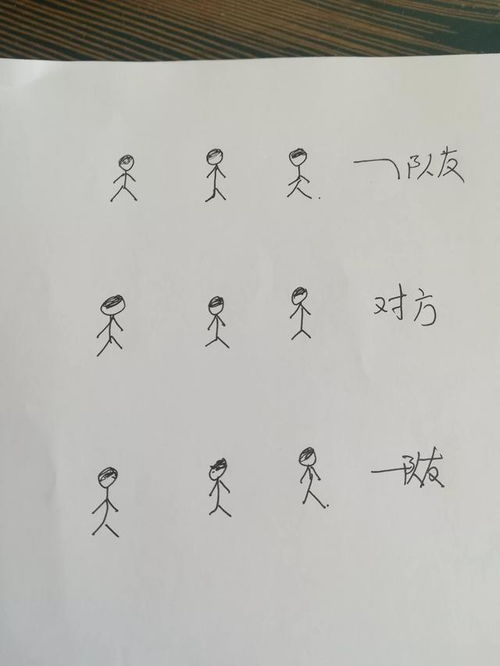 一队友
对方
一队友